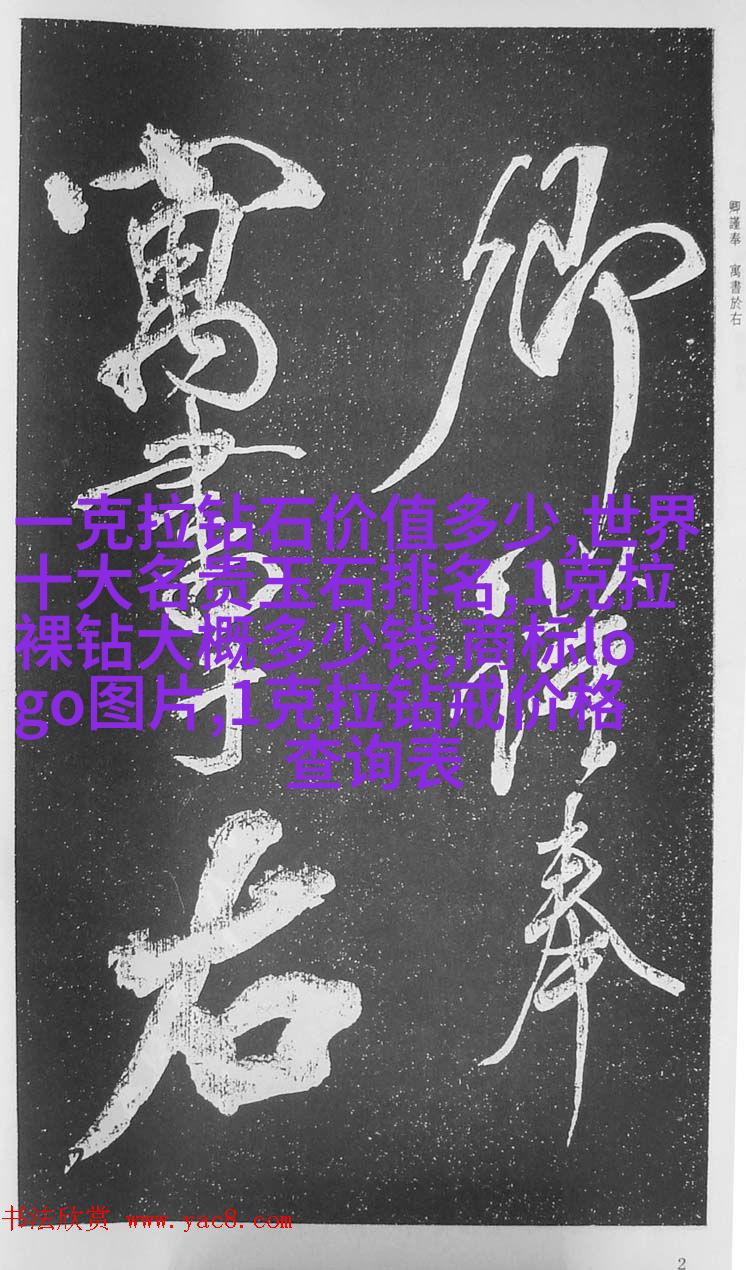 卿謹奉
寓書於右
卿謹奉 寓書於右
一克拉钻石价值多少,世界
十大名贵玉石排名,1克拉
裸钻大概多少钱,商标lo
go图片,1克拉钻戒价格
查询表
书法欣赏 www.yac8.com
2